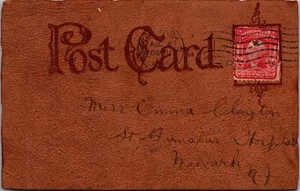 Post Card
Miss Emma Clayton
St Barnabas Hospital
Newark
N J